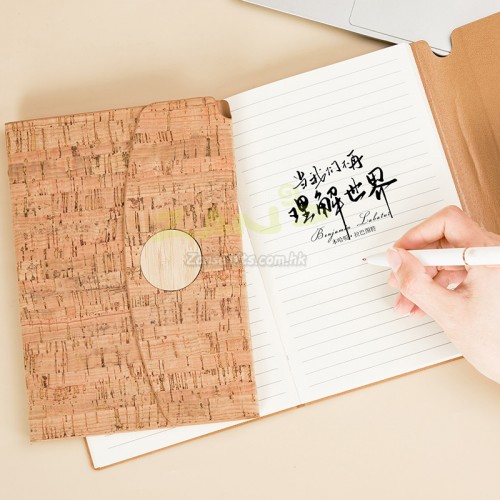 当我们不再
理解世界
Benjamin Labatut
本哈明·拉巴图特
Zensgifts.com.hk